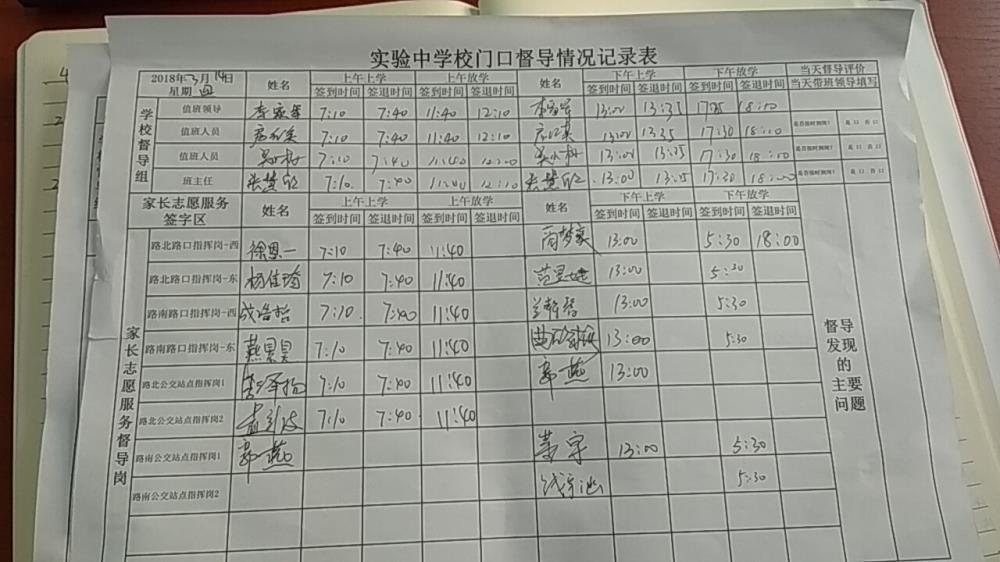 实验中学校门口督导情况记录表
2018年3月14日 星期 姓名 上午上学 上午放学 姓名 下午上学 下午放学 当天督导评价
签到时间 签退时间 签到时间 签退时间 签到时间 签退时间 签到时间 签退时间 当天带班领导填写
学校督导组
值班领导 7:10 7:40 11:40 12:10 13:00 13:35 18:00
值班人员 7:10 7:40 11:40 12:10 13:00 13:35 17:30 18:00 是否按时到岗？ 是口 否口
值班人员 7:10 7:40 11:40 12:00 13:00 13:35 17:30 18:00 是否按时到岗？ 是口 否口
班主任 张慧欣 7:10 7:40 12:10 张慧欣 13:00 17:30 18:00 是否按时到岗？ 是口 否口
家长志愿服务签字区 姓名 上午上学 上午放学 姓名 下午上学 下午放学
签到时间 签退时间 签到时间 签退时间 签到时间 签退时间 签到时间 签退时间
家长志愿服务督导岗
路北路口指挥岗-西 徐恩一 7:10 7:40 11:40 13:00 5:30 18:00
路北路口指挥岗-东 杨佳瑜 7:10 7:40 11:40 13:00 5:30
路南路口指挥岗-西 战浩哲 7:10 7:40 11:40 13:00 5:30
路南路口指挥岗-东 7:10 7:40 11:40 13:00 5:30
路北公交站点指挥岗1 7:10 7:40 11:40 郭燕 13:00
路北公交站点指挥岗2 7:10 7:40 11:40
路南公交站点指挥岗1 郭燕 13:00 5:30
路南公交站点指挥岗2 5:30
督导发现的主要问题